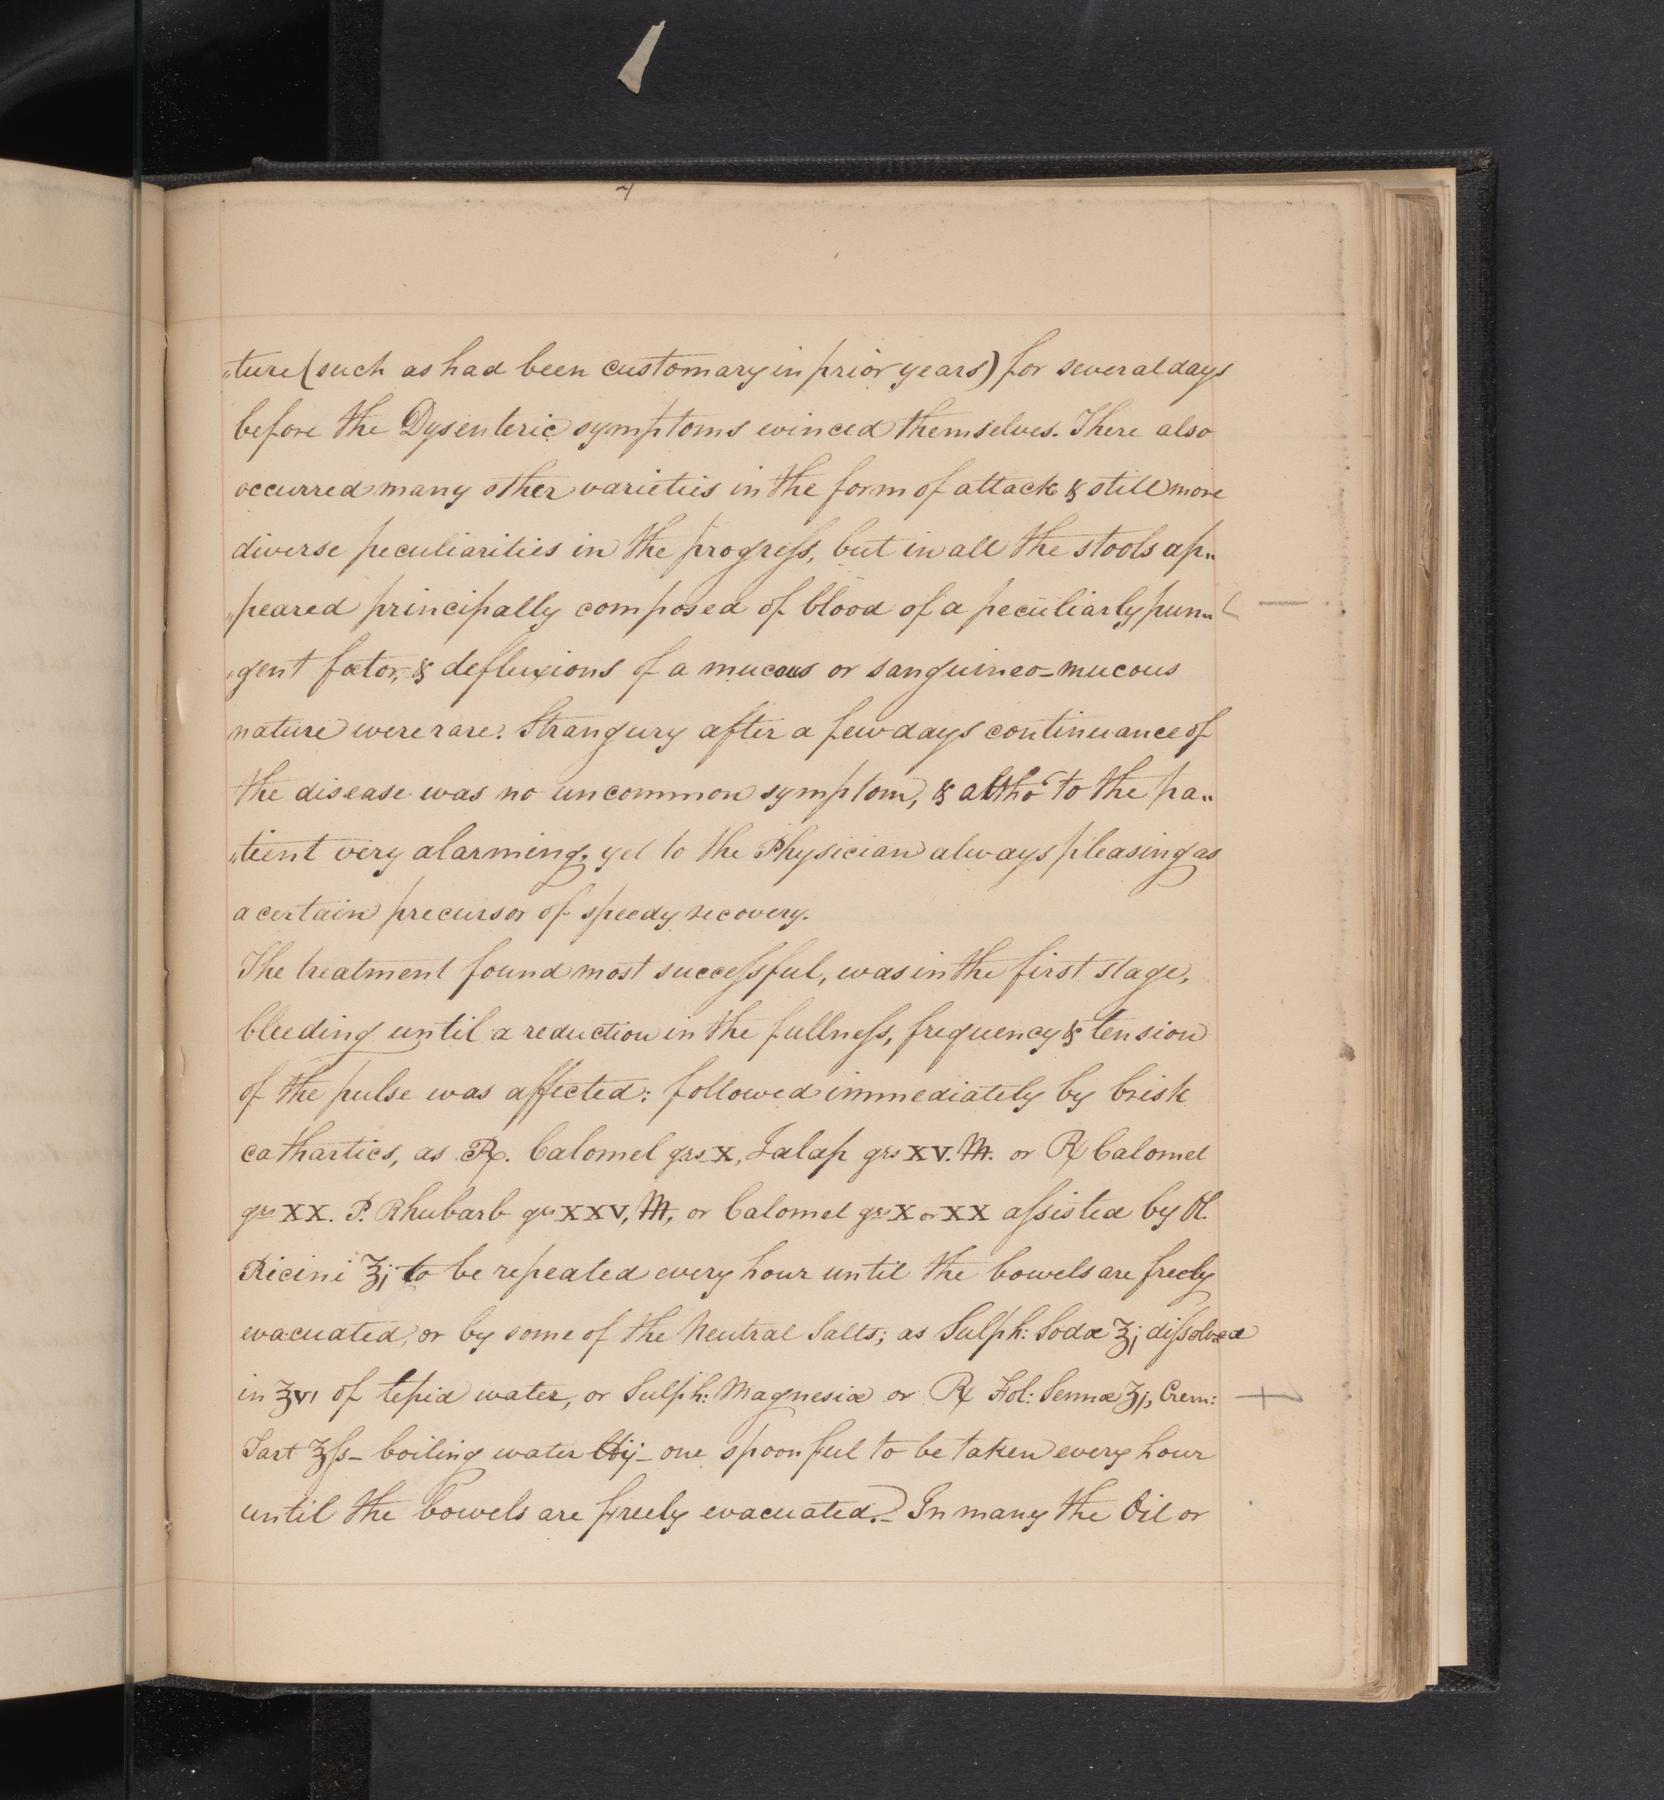 „ture (such as had been customary in prior years) for several days
before the Dysenteric symptoms evinced themselves. There also
occurred many other varieties in the form of attack & still more
diverse peculiarities in the progreſs, but in all the stools ap„
„peared principally composed of blood of a peculiarly pun„
„gent fœtor, & defluxions of a mucous or sanguineo-mucous
nature were rare. Strangury after a few days continuance of
the disease was no uncommon symptom, & altho' to the pa„
„tient very alarming, yet to the Physician always pleasing as
a certain precursor of speedy recovery.
The treatment found most succeſsful, was in the first stage,
bleeding until a reduction in the fullneſs, frequency & tension
of the pulse was affected: followed immediately by brisk
cathartics, as ℞. Calomel grs X, Jalap grs XV. M. or ℞ Calomel
grs XX. P. Rhubarb grs XXV, M, or Calomel grs X or XX aſsisted by Ol.
Ricini ℥j to be repeated every hour until the bowels are freely
evacuated, or by some of the Neutral Salts; as Sulph: Sodæ ℥j diſsolved
in ℥vi of tepid water, or Sulph: Magnesiæ or ℞ Fol: Sennæ ℥j, Crem:
Tart ℥ſs – boiling water ℔ij – one spoonful to be taken every hour
until the bowels are freely evacuated. – In many the Oil or